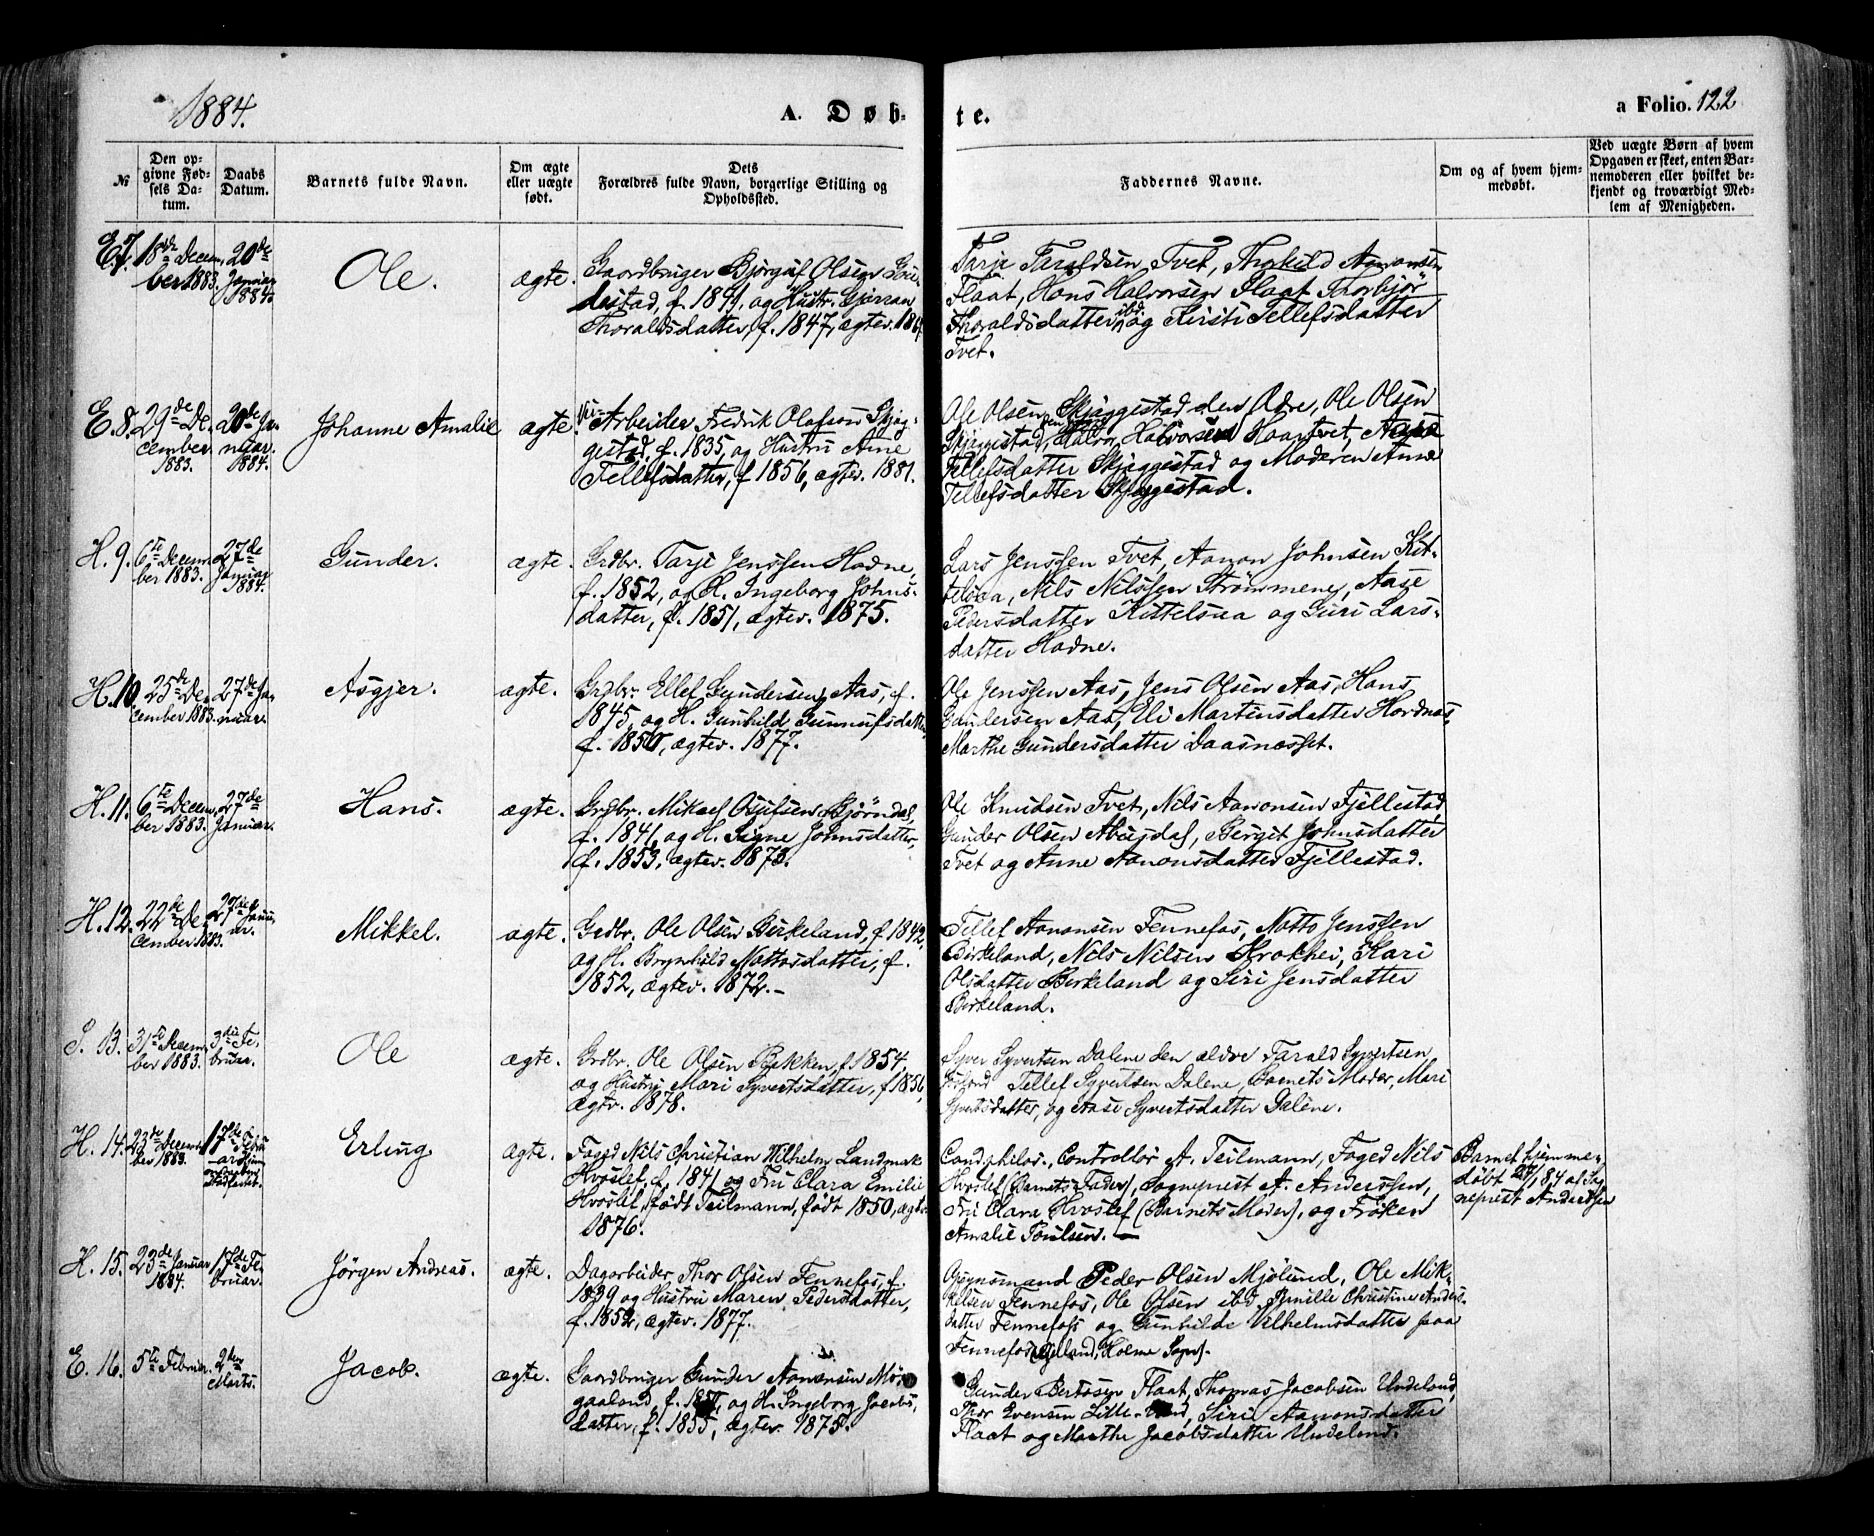 1884.
A. Døb-
te.
a Folio. 122
№
Den op-
givne Fød-
sels Da-
tum.
Daabs
Datum.
Barnets fulde Navn.
Om ægte
eller uægte
født.
Dets
Forældres fulde Navn, borgerlige Stilling og
Opholdssted.
Faddernes Navne.
Om og af hvem hjem-
medøbt.
Ved uægte Børn af hvem
Opgaven er skeet, enten Bar-
nemoderen eller hvilket be-
kjendt og troværdigt Med-
lem af Menigheden.
E. 7.
18de Decem-
ber 1883.
20de
Januar
1884.
Ole.
ægte.
Gaardbruger Bjørguf Olsen
f. 1841, og Hustr.
Tharaldsdatter, f. 1847, ægtev.
Tarje Taraldsen Tvet, Thorkild Aanonsen
Flaat, Hans Halvorsen Flaat Thorbjør
Tharaldsdatter ibd. og Kirsti Tellefsdatter
Tvet.
E. 8.
29de De-
cember
1883.
20de Ja-
nuar.
1884.
Johanne Amalie
ægte.
Arbeider Fredrik Olafsen Skjæg-
gestad, f. 1835, og Hustru Anne
Tellefsdatter, f 1856, ægtev. 1881.
Ole Olsen Skjæggestad den Ældre, Ole Olsen
Skjæggestad, Halvor Halvorsen Haartvet,
Tellefsdatter Skjæggestad og Moderen Anne
Tellefsdatter Skjæggestad.
H. 9.
6te Decem-
ber 1883.
27de
Januar
1884.
Gunder.
ægte.
Grdbr. Tarje Jenssen Hodne,
f. 1852, og H. Ingeborg Johns-
datter, f. 1851, ægtev. 1875.
Lars Jenssen Tvet, Aanon Johnsen Kit-
telsaa, Nils Nilssen Strømmene, Aase
Pedersdatter Kittelsaa og Guri Lars-
datter Hodne.
H. 10.
25de De-
cember 1883.
27de Ja-
nuar.
Asgjer.
ægte.
Grdbr. Ellef Gundersen Aas, f.
1845, og H. Gunhild Gunnufsdatter
f. 1850, ægtev. 1877.
Ole Jenssen Aas, Jens Olsen Aas, Hans
Gundersen Aas, Eli Martinsdatter Hordnes,
Marthe Gundersdatter Daasnesset.
H. 11.
6te Decem-
ber 1883.
27de
Januar.
Hans.
ægte.
Grdbr. Mikael Osufsen Bjørndal,
f. 1841, og H. Signe Johnsdatter,
f. 1853, ægtev. 1873.
Ole Knudsen Tvet, Nils Aanonsen Fjellestad,
Gunder Olsen Abusdal, Bergit Johnsdatter
Tvet og Anne Aanonsdatter Fjellestad.
H. 12.
22de De-
cember 1883.
27de Janu-
ar.
Mikkel.
ægte.
Grdbr. Ole Olsen Birkeland, f 1842,
og H. Brynhild Nottosdatter, f.
1852, ægtev. 1872.-
Tellef Aanonsen Fennefos, Notto Jenssen
Birkeland, Nils Nilsen Krokhei, Kari
Olsdatter Birkeland og Siri Jensdatter
Birkeland.
S. 13.
31te Decem-
ber 1883.
3die Fe-
bruar.
Ole
ægte.
Grdbr. Ole Olsen Bakken, f 1854,
og Hustru Mari Syvertsdatter, f 1856,
ægtv. 1878.
Syver Syvertsen Dalene den ældre Tarald Syvertsen
Tellef Syvertsen Dalene, Barnets Moder, Mari
Syvertsdatter, og Aase Syvertsdatter Dalene.
H. 14.
23de Decem-
ber 1883.
17de Febru-
ar
Erling.
ægte.
Foged Nils Christian Wilhelm Landmark
Hvoslef, f. 1841 og Fru Clara Emilie
Hvoslef, født Teilmann, født 1850, ægtv.
1876.
Cand. philos., Controllør A. Teilmann, Foged Nils
Hvoslef (Barnets Fader), Sogneprest A. Anderssen,
Fru Clara Hvoslef (Barnets Moder), og Frøken
Amalie Poulsen.
Barnet hjemme-
døbt 27/1 84 af Sog-
neprest Anderssen
H. 15.
23de Januar
1884.
17de Fe-
bruar.
Jørgen Andreas.
ægte.
Dagarbeider Thor Olsen Fennefos, f.
1839 og Hustru Maren Pedersdatter,
f. 1852, ægtev. 1877.
Peder Olsen Mjølund, Ole Mik-
kelsen Fennefos, Ole Olsen ibd Pernille Christine Anders-
datter Fennefoss og Gunhilde Vilhelmsdatter paa
Fennefos, Holme Sogn).
E. 16.
5te Februar.
2den
Marts.
Jacob.
ægte.
Gaardbruger Gunder Aanonsen
og H. Ingeborg Jacobs-
datter, f. 1855, ægtev. 1875.
Gunder Bertssen Flaat, Thomas Jacobsen Undeland,
Thor Evensen Siri Aanonsdatter
Flaat og Marthe Jacobsdatter Undeland.